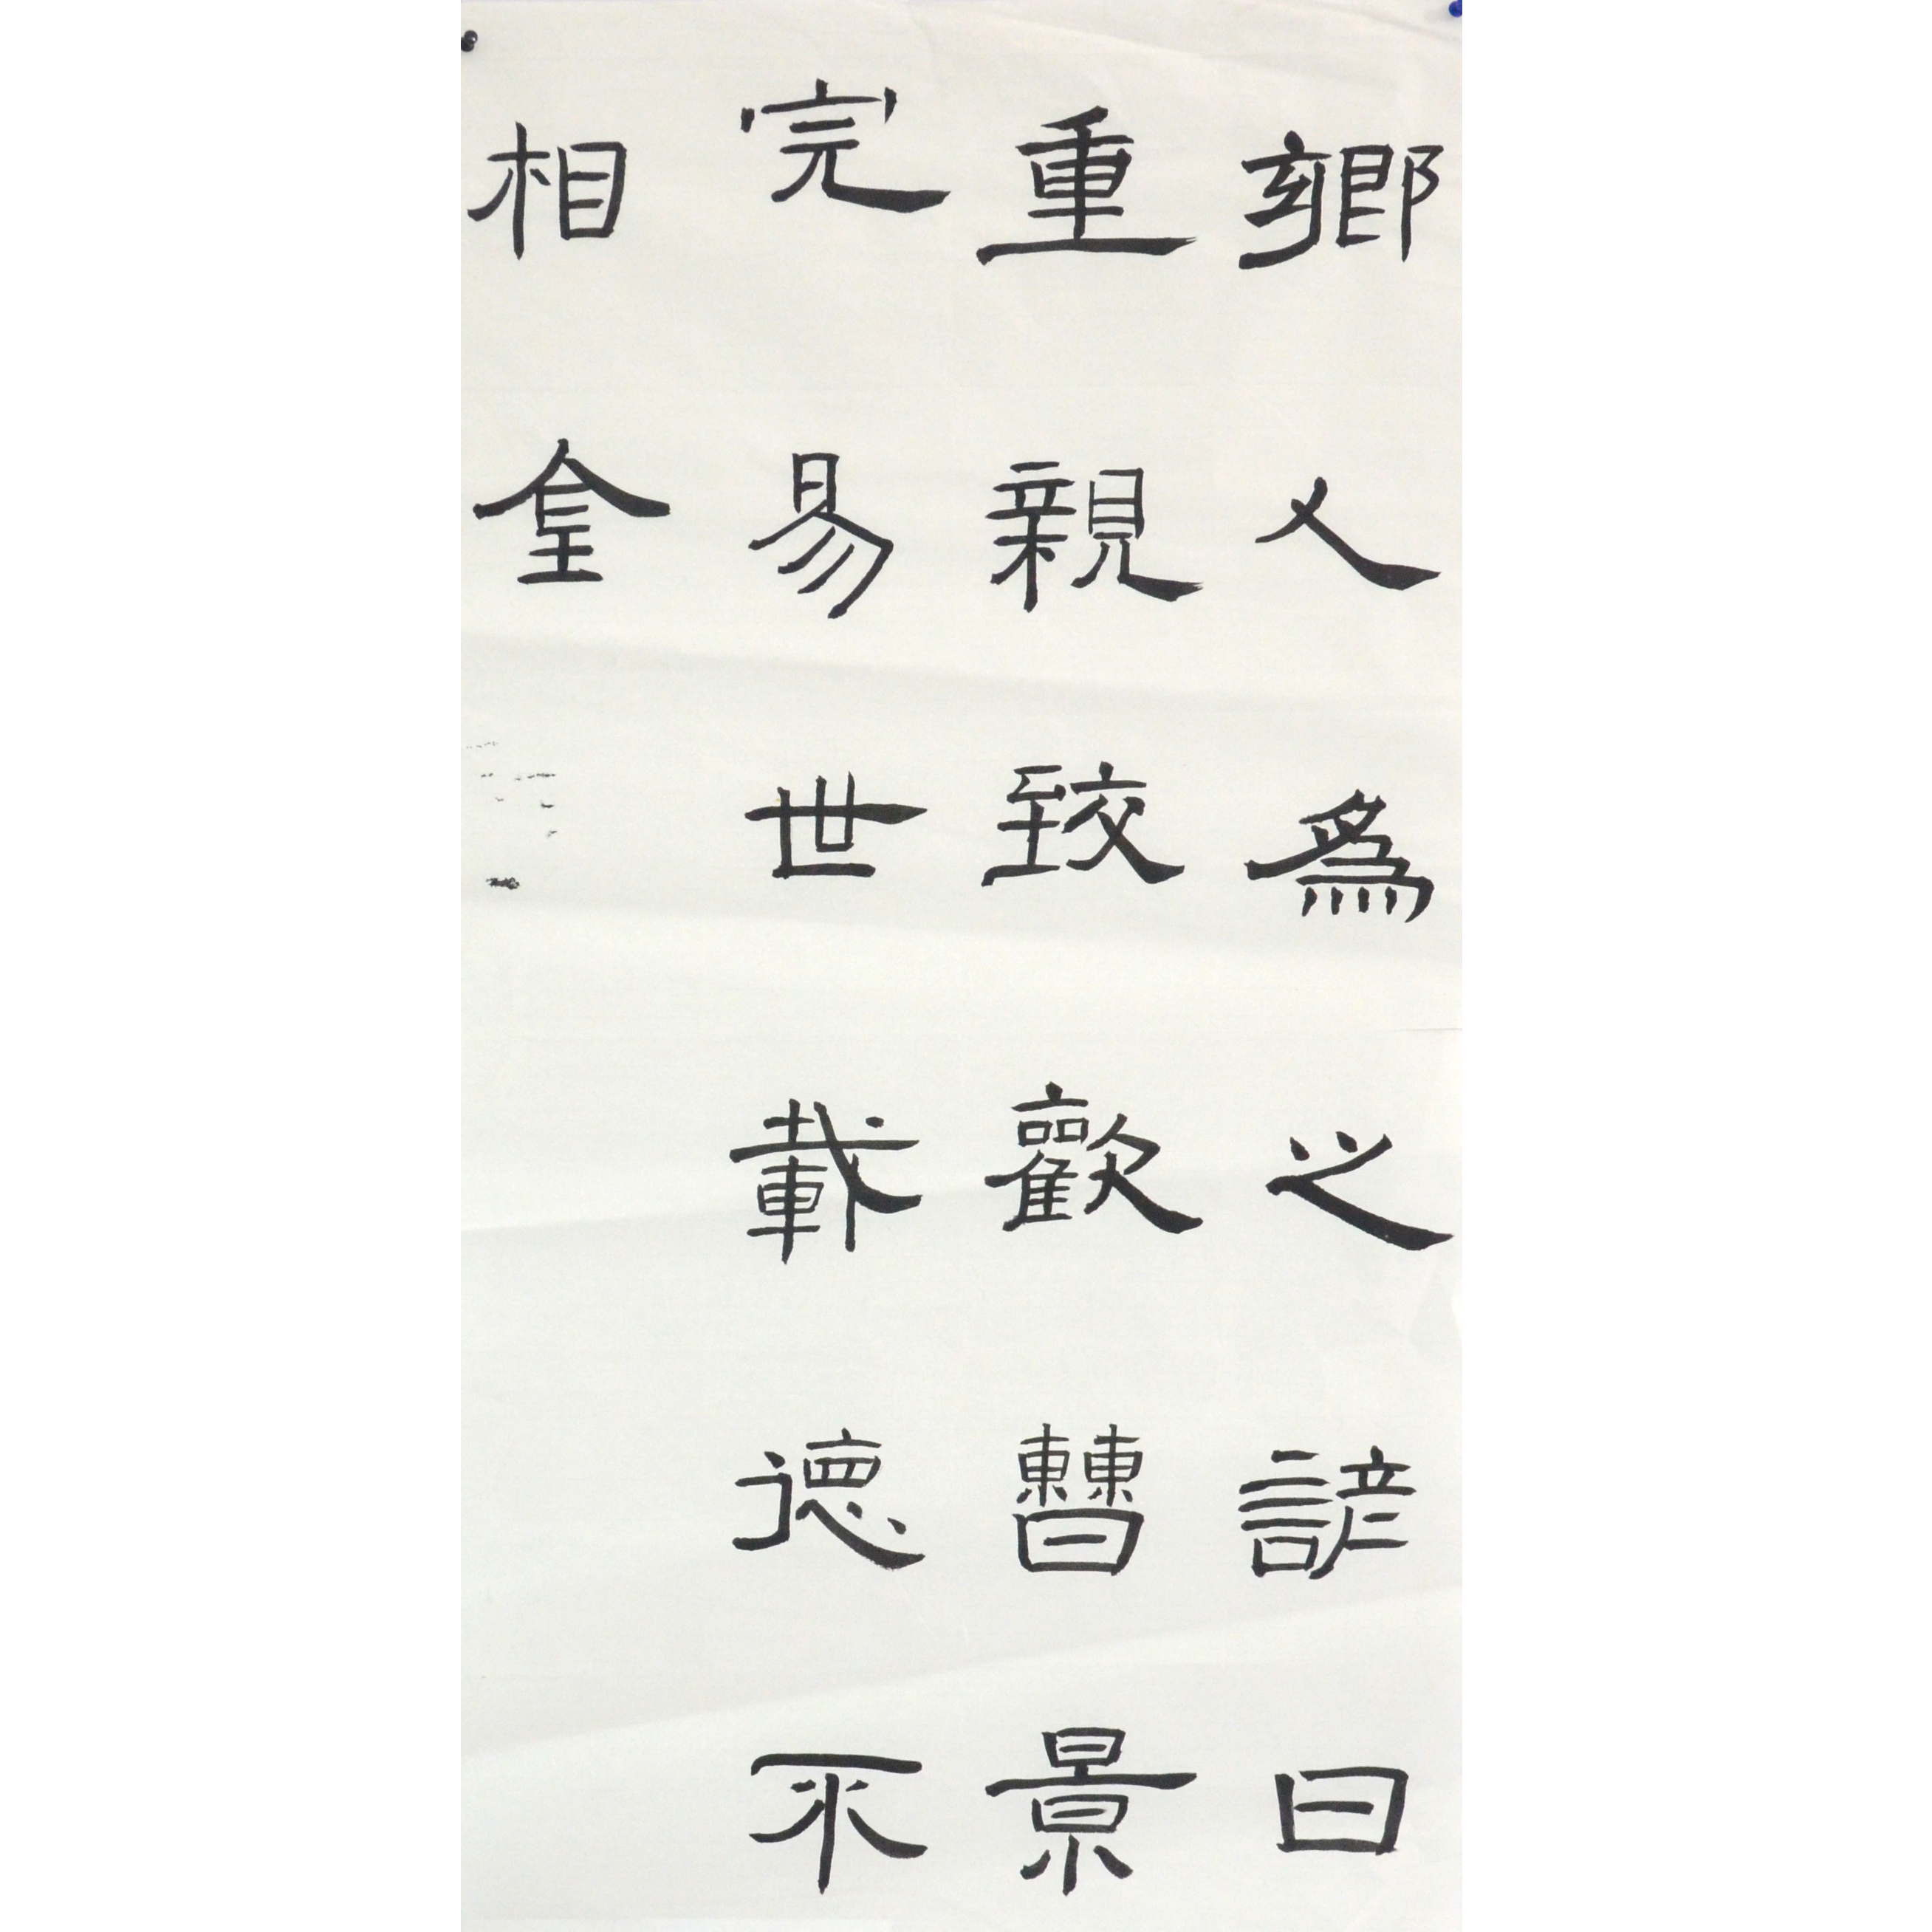 鄉人爲之諺曰
重親致歡曹景
完易世載德不
相